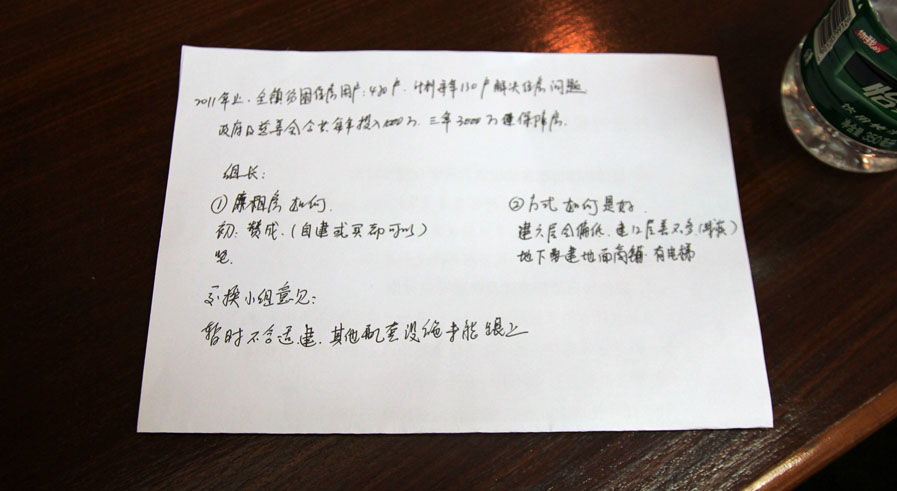 2011年止.全镇贫困住房困户:430户.计划每年150户解决住房问题
政府及慈善会会出每年投入1000万.三年3000万建保障房.
组长:
①廉租房如何.
初.赞成.(自建或买却可以)
②方式如何是好.
建六层会偏低.建12层差不多
地下要建地面商铺.有电梯
交换小组意见:
暂时不合适建.其他配套设施未能跟上
怡